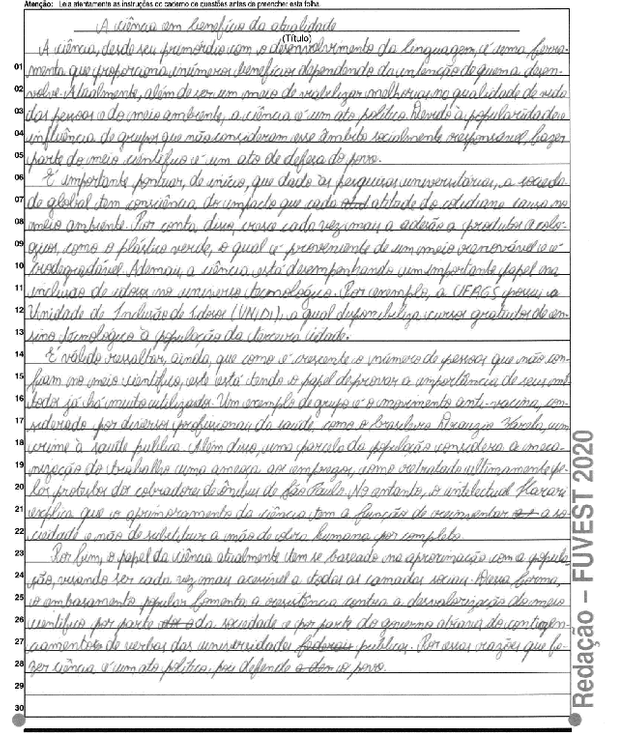 Atenção: Leia atentamente as instruções do caderno de questões antes de preencher esta folha.
A ciência em benefício da atualidade
(Título)
A ciência, desde seu primórdio com o desenvolvimento da linguagem, é uma ferra-
01 menta que proporciona inúmeros benefícios dependendo da intenção de quem a desen-
02 volve. Atualmente, além de ser um meio de viabilizar melhorias na qualidade de vida
03 das pessoas e do meio ambiente, a ciência é um ato político. Devido à popularidade e
04 influência de grupos que não consideram esse âmbito socialmente responsável, fazer
05 parte do meio científico é um ato de defesa do povo.
06 É importante pontuar, de início, que dado às pesquisas universitárias, a socieda-
07 de global tem consciência do impacto que cada atitude do cotidiano causa no
08 meio ambiente. Por conta disso, cresce cada vez mais a adesão a produtos ecoló-
09 gicos, como o plástico verde, o qual é proveniente de um meio renovável e é
10 biodegradável. Ademais, a ciência está desempenhando um importante papel na
11 inclusão de idosos no universo tecnológico. Por exemplo, a UFRGS possui a
12 Unidade de Inclusão de Idosos (UNIDI), a qual disponibiliza cursos gratuitos de en-
13 sino tecnológico à população da terceira idade.
14 É válido ressaltar, ainda, que como é crescente o número de pessoas que não con-
15 fiam no meio científico, este está tendo o papel de provar a importância de seus mé-
16 todos já há muito utilizados. Um exemplo de grupo é o movimento anti-vacina, con-
17 siderado por diversos profissionais da saúde, como o brasileiro Drauzio Varela, um
18 crime à saúde pública. Além disso, uma parcela da população considera a meca-
19 nização do trabalho uma ameaça aos empregos, como retratado ultimamente pe-
20 los protestos dos cobradores de ônibus de São Paulo. No entanto, o intelectual Harari
21 explica que o aprimoramento da ciência tem a função de a so-
22 ciedade e não de substituir a mão de obra humana por completo.
23 Por fim, o papel da ciência atualmente tem se baseado na aproximação com a popula-
24 ção, visando ser cada vez mais acessível a todas as camadas sociais. Dessa forma,
25 o embasamento popular fomenta a resistência contra a desvalorização do meio
26 científico por parte da sociedade e por parte do governo através do contingen-
27 ciamento de verbas das universidades federais públicas. Por essas razões que fa-
28 zer ciência é um ato político, pois defende o povo.
29
30
Redação – FUVEST 2020